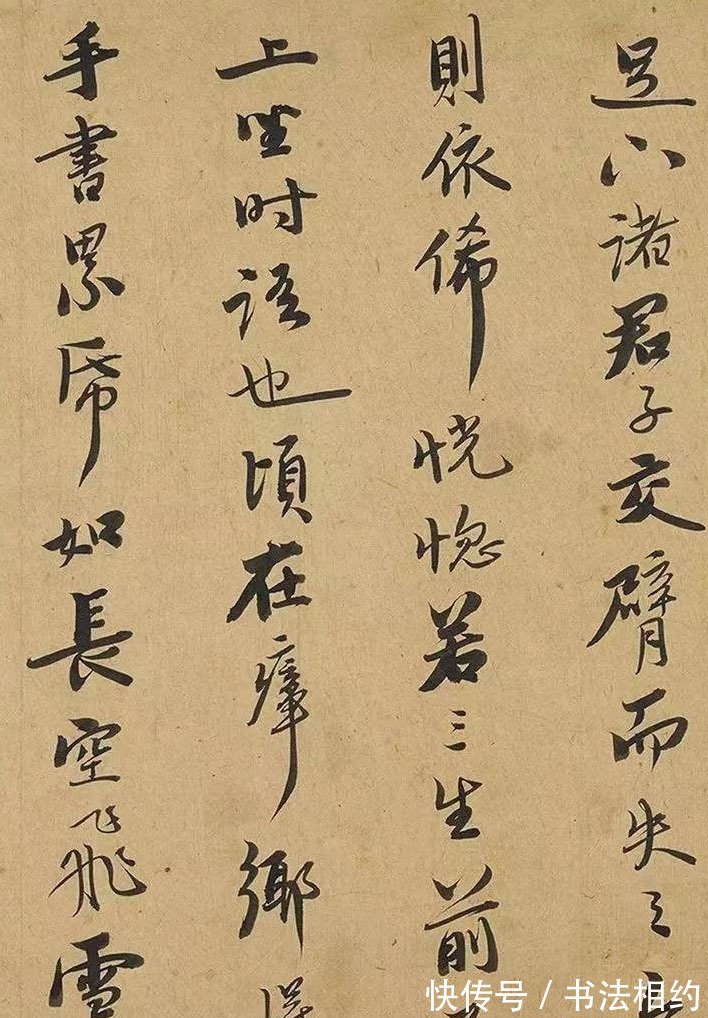 足下諸君子交臂而失之
則依俙恍惚若三生前
上坐时語也頃在瘴鄉
手書累帋如長空飛雪
快传号 / 书法相约